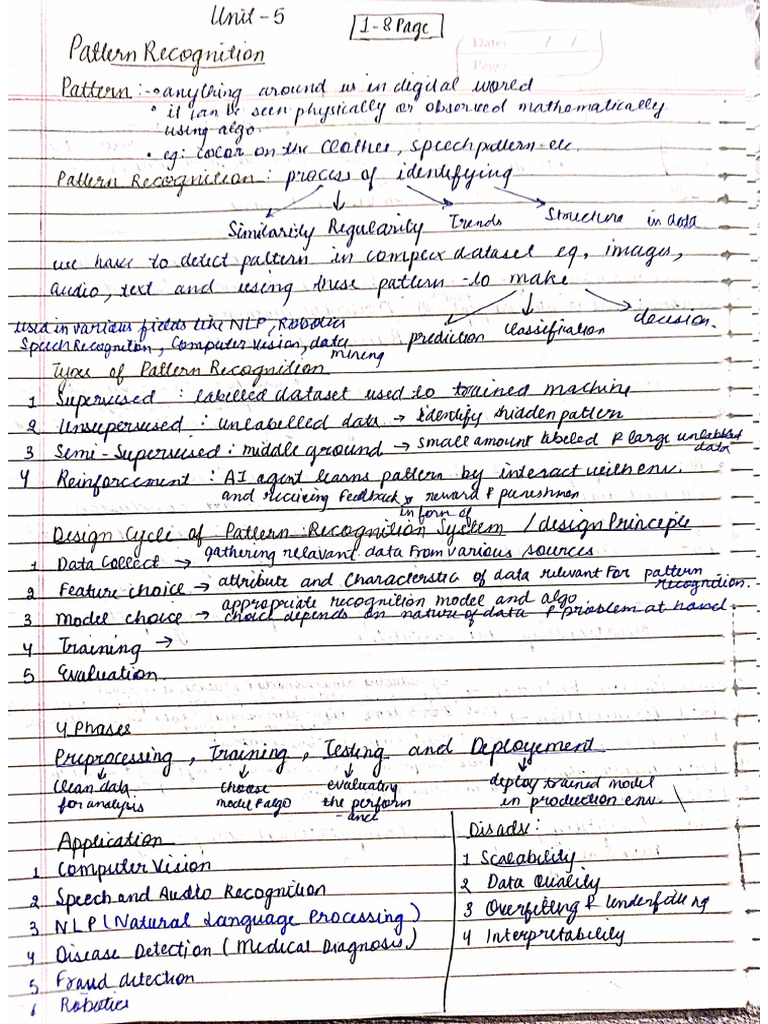 Unit-5
1-8 Page
Date: / /
Page:
Pattern Recognition
Pattern :- • anything around us in digital world
• it can be seen physically or observed mathematically
using algo.
• eg: color on the clothes, speech pattern etc.
Pattern Recognition: process of identifying
Similarity Regularity Trends Structure in data
we have to detect pattern in complex dataset eg, images,
audio, text and using these pattern to make
prediction classification decision.
used in various fields like NLP, Robotics
Speech Recognition, Computer Vision, data
mining
Types of Pattern Recognition
1 Supervised : labelled dataset used to trained machine
2 Unsupervised : unlabelled data → identify hidden pattern
3 Semi-Supervised : middle ground → small amount labeled & large unlabled
data
4 Reinforcement : AI agent learns pattern by interact with env.
and receiving feedback reward & punishmen
in form of
Design Cycle of Pattern Recognition System / design Principle
1 Data Collect → gathering relavant data from various sources
2 Feature choice → attribute and Characterstic of data relevant for pattern
recognition.
3 Model choice → appropriate recognition model and algo
choice depends on nature of data & problem at hand
4 Training →
5 Evaluation
4 Phases
Preprocessing , Training , Testing and Deployement
clean data
for analysis
choose
model & algo
evaluating
the perform
-ance
deploy trained model
in production env. \
Application
1 Computer Vision
2 Speech and Audio Recognition
3 NLP (Natural Language Processing)
4 Disease Detection (Medical Diagnosis)
5 Fraud detection
6 Robotics
Disadv:
1 Scalability
2 Data Quality
3 Overfitting & Underfitting
4 Interpretability